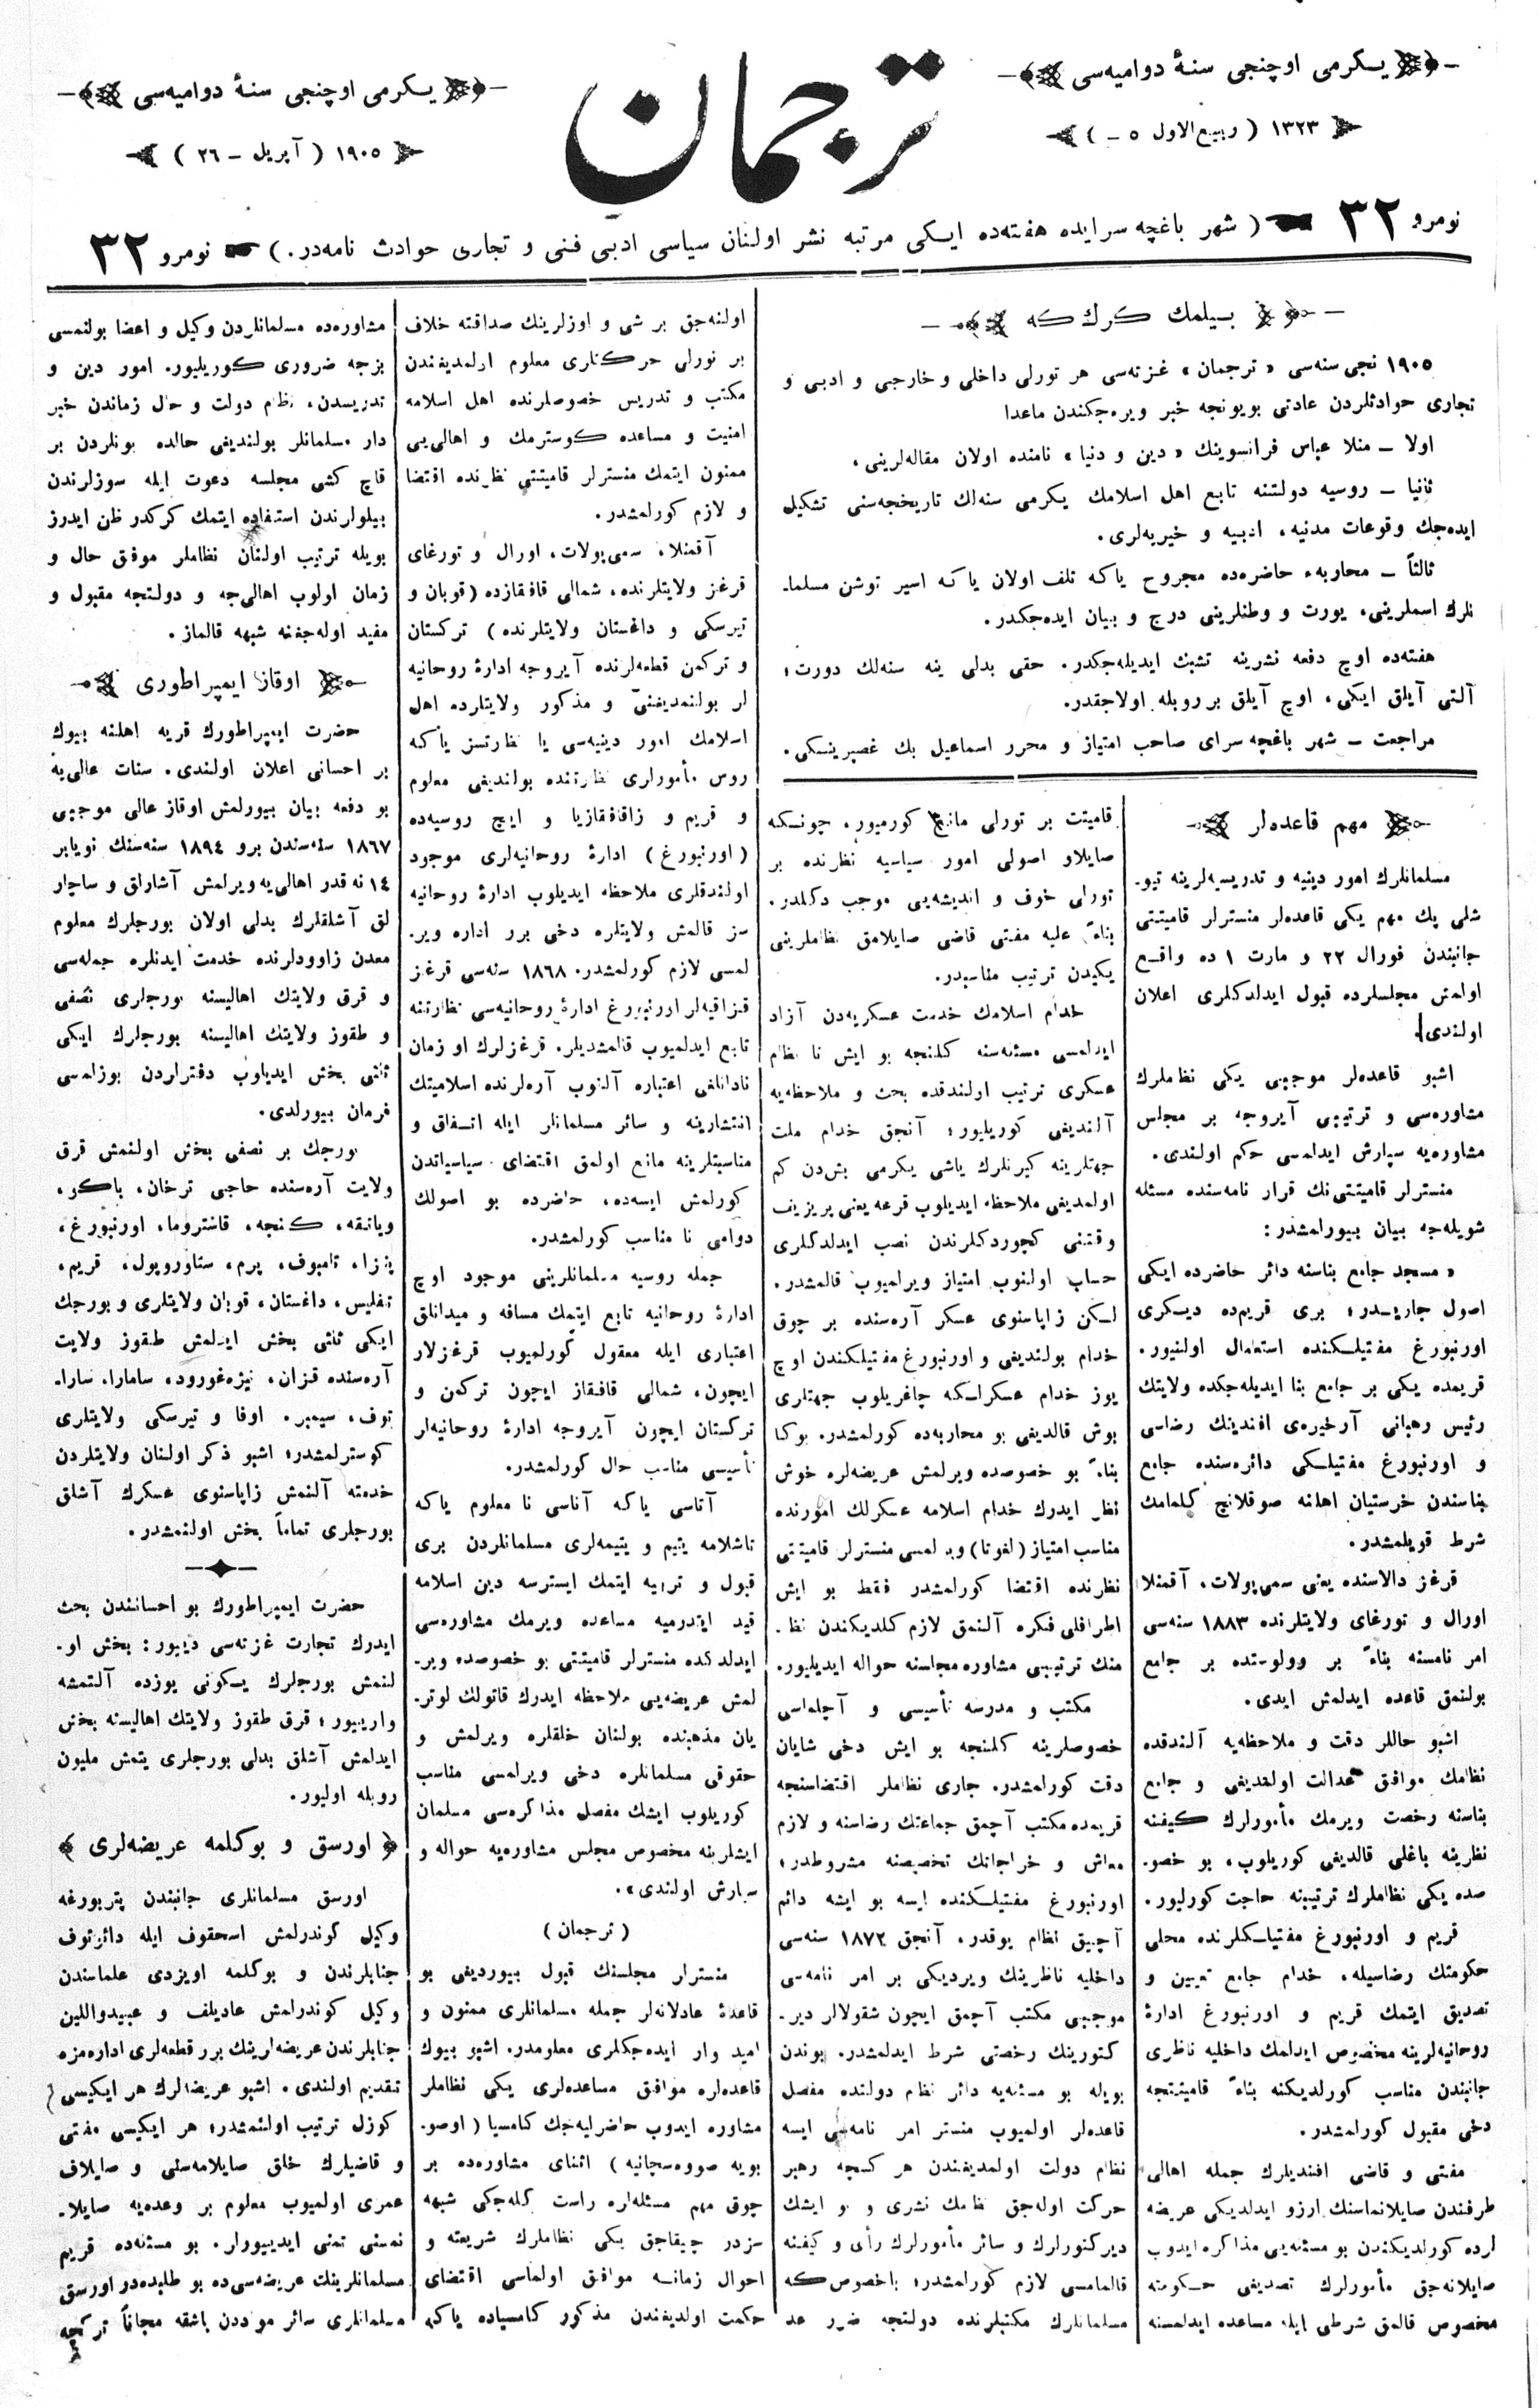 يكرمى اوچنجى سنۀ دواميه‌سى
۱۳۲۳ ( ربيع الاول ٥ - )
ترجمان
يكرمى اوچنجى سنۀ دواميه‌سى
۱۹۰٥ ( آپريل - ۲٦ )
نومرو ۳۲ ( شهر باغچه سرايده هفته‌ده ايكى مرتبه نشر اولنان سياسى ادبى فنى و تجارى حوادث نامه‌در . ) نومرو ۳۲
بيلمك كرك كه
۱۹۰٥ نجى سنه‌سى « ترجمان » غزته‌سى هر تورلى داخلى و خارجى و ادبى و
تجارى حوادثلردن عادتى بويونجه خبر ويره‌جكندن ماعدا
اولا – منلا عباس فرانسوينك « دين و دنيا » نامنده اولان مقاله‌لرينى ،
ثانيا – روسيه دولتنه تابع اهل اسلامك يكرمى سنه‌لك تاريخجه‌سنى تشكيل
ايده‌جك وقوعات مدنيه ، ادبيه و خيريه‌لرى .
ثالثاً – محاربۀ حاضره‌ده مجروح ياكه تلف اولان ياكه اسير توشن مسلما-
نلرك اسملرينى ، يورت و وطنلرينى درج و بيان ايده‌جكدر .
هفته‌ده اوچ دفعه نشرينه تشبث ايديله‌جكدر . حقى بدلى ينه سنه‌لك دورت ؛
آلتى آيلق ايكى ، اوچ آيلق بر روبله اولاجقدر .
مراجعت – شهر باغچه سراى صاحب امتياز و محرر اسماعيل بك غصپرينسكى .
مهم قاعده‌لر
مسلمانلرك امور دينيه و تدريسيه‌لرينه تيو-
شلى پك مهم يكى قاعده‌لر منسترلر قاميتتى
جانبندن فورال ۲۲ و مارت ۱ ده واقع
اولمش مجلسلرده قبول ايدلدكلرى اعلان
اولندى .
اشبو قاعده‌لر موجبى يكى نظاملرك
مشاوره‌سى و ترتيبى آيروجه بر مجلس
مشاوره‌يه سپارش ايدلمسى حكم اولندى .
منسترلر قاميتتى‌نك قرار نامه‌سنده مسئله
شويله‌جه بيان بيورلمشدر :
« مسجد جامع بناسنه دائر حاضرده ايكى
اصول جاريدر ؛ برى قريم‌ده ديكرى
اورنبورغ مفتيلكنده استعمال اولنيور .
قريمده يكى بر جامع بنا ايديله‌جكده ولايتك
رئيس رهبانى آرخيره‌ى افندينك رضاسى
و اورنبورغ مفتيلكى دائره‌سنده جامع
بناسندن خرستيان اهلنه صوقلانچ كلمامك
شرط قويلمشدر .
قرغز دالاسنده يعنى سمى‌پولات ، آقمنلا
اورال و تورغاى ولايتلرنده ۱۸۸۳ سنه‌سى
امر نامسنه بناءً بر وولوستده بر جامع
بولنمق قاعده ايدلمش ايدى .
اشبو حاللر دقت و ملاحظه‌يه آلندقده
نظامك موافق عدالت اولمديغى و جامع
بناسنه رخصت ويرمك مأمورلرك كيفنه
نظرينه باغلى قالديغى كوريلوب ، بو خصو-
صده يكى نظاملرك ترتيبنه حاجت كورليور .
قريم و اورنبورغ مفتيلكلرنده محلى
حكومتك رضاسيله ، خدام جامع تعيين و
تصديق ايتمك قريم و اورنبورغ ادارۀ
روحانيه‌لرينه مخصوص ايدلمك داخليه ناظرى
جانبندن مناسب كورلديكنه بناءً قاميتتجه
دخى مقبول كورلمشدر .
مفتى و قاضى افنديلرك جمله اهالى
طرفندن صايلانماسنك ارزو ايدلديكى عريضه
لرده كورلديكندن بو مسئله‌يى مذاكره ايدوب
صايلانه‌جق مأمورلرك تصديقى حكومته
مخصوص قالمق شرطى ايله مساعده ايدلمسنه
قاميتت بر تورلى مانع كورميور . چونكه
صايلاو اصولى امور سياسيه نظرنده بر
تورلى خوف و انديشه‌يى موجب دكلدر .
بناءً عليه مفتى قاضى صايلامق نظاملرينى
يكيدن ترتيب مناسبدر .
خدام اسلامك خدمت عسكريه‌دن آزاد
ايدلمسى مسئله‌سنه كلنجه بو ايش نا نظام
عسكرى ترتيب اولندقده بحث و ملاحظه‌يه
آلنديغى كوريليور ؛ آنجق خدام ملت
جهتلرينه كيرنلرك ياشى يكرمى بش‌دن كم
اولمديغى ملاحظه ايديلوب قرعه يعنى پريزيف
وقتنى كچوردكلرندن نصب ايدلدكلرى
حساب اولنوب امتياز ويرلميوب قالمشدر .
لكن زاپاسنوى عسكر آره‌سنده بر چوق
خدام بولنديغى و اورنبورغ مفتيلكندن اوچ
يوز خدام عسكرلكه چاغريلوب جهتلرى
بوش قالديغى بو محاربه‌ده كورلمشدر . بوكا
بناءً بو خصوصده ويرلمش عريضه‌لره خوش
نظر ايدرك خدام اسلامه عسكرلك امورنده
مناسب امتياز ( لغوتا ) ويرلمسى منسترلر قاميتتى
نظرنده اقتضا كورلمشدر فقط بو ايش
اطرافلى فكره آلنمق لازم كلديكندن نظا-
منك ترتيبى مشاوره مجلسنه حواله ايديليور .
مكتب و مدرسه تأسيسى و آچلماسى
خصوصلرينه كلنجه بو ايش دخى شايان
دقت كورلمشدر . جارى نظاملر اقتضاسنجه
قريمده مكتب آچمق جماعتك رضاسنه و لازم
معاش و خراجاتك تخصيصنه مشروطدر ؛
اورنبورغ مفتيلكنده ايسه بو ايشه دائم
آچيق نظام يوقدر . آنجق ۱۸۷۲ سنه‌سى
داخليه ناظرينك ويرديكى بر امر نامه‌سى
موجبى مكتب آچمق ايچون شقولالر دير-
كتورينك رخصتى شرط ايدلمشدر . بوندن
بويله بو مسئله‌يه دائر نظام دولتده مفصل
قاعده‌لر اولميوب منستر امر نامه‌سى ايسه
نظام دولت اولمديغندن هر كسچه رهبر
حركت اوله‌جق نظامك نشرى و بو ايشك
ديركتورلرك و سائر مأمورلرك رأى و كيفنه
قالمامسى لازم كورلمشدر ؛ باخصوص كه
مسلمانلرك مكتبلرنده دولتجه ضرر عد
اولنه‌جق بر شى و اوزلرينك صداقته خلاف
بر تورلى حركتلرى معلوم اولمديغندن
مكتب و تدريس خصوصلرنده اهل اسلامه
امنيت و مساعده كوسترمك و اهالى‌يى
ممنون ايتمك منسترلر قاميتتى نظرنده اقتضا
و لازم كورلمشدر .
آقمنلا ، سمى‌پولات ، اورال و تورغاى
قرغز ولايتلرنده ، شمالى قافقازده ( قوبان و
تيرسكى و داغستان ولايتلرنده ) تركستان
و تركمن قطعه‌لرنده آيروجه ادارۀ روحانيه
لر بولنمديغنى و مذكور ولايتلرده اهل
اسلامك امور دينيه‌سى يا نظارتسز ياكه
روس مأمورلرى نظارتنده بولنديغى معلوم
و قريم و زاقافقازيا و ايچ روسيه‌ده
( اورنبورغ ) ادارۀ روحانيه‌لرى موجود
اولندقلرى ملاحظه ايديلوب ادارۀ روحانيه
سز قالمش ولايتلره دخى برر اداره وير-
لمسى لازم كورلمشدر . ۱۸٦۸ سنه‌سى قرغز
قزاقيه‌لر اورنبورغ ادارۀ روحانيه‌سى نظارتنه
تابع ايدلميوب قالمشديلر . قرغزلرك او زمان
نادانلغى اعتباره آلنوب آره‌لرنده اسلاميتك
انتشارينه و سائر مسلمانلر ايله اتفاق و
مناسبتلرينه مانع اولمق اقتضاى سياسياتدن
كورلمش ايسه‌ده ، حاضرده بو اصولك
دوامى نا مناسب كورلمشدر .
جمله روسيه مسلمانلرينى موجود اوچ
ادارۀ روحانيه تابع ايتمك مسافه و ميدانلق
اعتبارى ايله معقول كورلميوب قرغزلار
ايچون ، شمالى قافقاز ايچون تركمن و
تركستان ايچون آيروجه ادارۀ روحانيه‌لر
تأسيسى مناسب حال كورلمشدر .
آتاسى ياكه آناسى نا معلوم ياكه
تاشلامه يتيم و يتيمه‌لرى مسلمانلردن برى
قبول و تربيه ايتمك ايسترسه دين اسلامه
قيد ايتدرميه مساعده ويرمك مشاوره‌سى
ايدلدكده منسترلر قاميتتى بو خصوصده وير-
لمش عريضه‌يى ملاحظه ايدرك قاتولك لوتر-
يان مذهبنده بولنان خلقلره ويرلمش و
حقوقى مسلمانلره دخى ويرلمسى مناسب
كوريلوب ايشك مفصل مذاكره‌سى مسلمان
ايشلرينه مخصوص مجلس مشاوره‌يه حواله و
سپارش اولندى » .
( ترجمان )
منسترلر مجلسنك قبول بيورديغى بو
قاعدۀ عادلانه‌لر جمله مسلمانلرى ممنون و
اميد وار ايده‌جكلرى معلومدر . اشبو بيوك
قاعده‌لره موافق مساعده‌لرى يكى نظاملر
مشاوره ايدوب حاضرليه‌جك كامسيا ( اوصو-
بويه صووه‌سچانيه ) اثناى مشاوره‌ده بر
چوق مهم مسئله‌لره راست كله‌جكى شبهه
سزدر چيقاجق يكى نظاملرك شريعته و
احوال زمانه موافق اولماسى اقتضاى
حكمت اولديغندن مذكور كامسياده ياكه
مشاوره‌ده مسلمانلردن وكيل و اعضا بولنمسى
بزجه ضرورى كوريليور . امور دين و
تدريسدن ، نظام دولت و حال زماندن خبر
دار مسلمانلر بولنديغى حالده بونلردن بر
قاچ كشى مجلسه دعوت ايله سوزلرندن
بيلولرندن استفاده ايتمك كركدر ظن ايدرز
بويله ترتيب اولنان نظاملر موفق حال و
زمان اولوب اهالى‌جه و دولتجه مقبول و
مفيد اوله‌جغنه شبهه قالماز .
اوقاز ايمپراطورى
حضرت ايمپراطورك قريه اهلنه بيوك
بر احسانى اعلان اولندى . سنات عالى‌يه
بو دفعه بيان بيورلمش اوقاز عالى موجبى
۱۸٦۷ سنه‌سندن برو ۱۸۹٤ سنه‌سنك نويابر
۱٤ نه قدر اهالى‌يه ويرلمش آشارلق و ساچار
لق آشلقلرك بدلى اولان بورجلرك معلوم
معدن زاوودلرنده خدمت ايدنلره جمله‌سى
و قرق ولايتك اهاليسنه بورجلرى نصفى
و طقوز ولايتك اهاليسنه بورجلرك ايكى
ثلثى بخش ايديلوب دفترلردن بوزلمسى
فرمان بيورلدى .
بورجك بر نصفى بخش اولنمش قرق
ولايت آره‌سنده حاجى ترخان ، باكو ،
وياتقه ، كنجه ، قاشتروما ، اورنبورغ ،
پنزا ، تامبوف ، پرم ، ستاوروپول ، قريم ،
تفليس ، داغستان ، قوبان ولايتلرى و بورجك
ايكى ثلثى بخش ايدلمش طقوز ولايت
آره‌سنده قزان ، نيژه‌غورود ، سامارا ، سارا-
توف ، سيمبر ، اوفا و تيرسكى ولايتلرى
كوسترلمشدر ؛ اشبو ذكر اولنان ولايتلردن
خدمته آلنمش زاپاسنوى عسكرك آشلق
بورجلرى تماماً بخش اولنمشدر .
حضرت ايمپراطورك بو احسانندن بحث
ايدرك تجارت غزته‌سى دييور : بخش او-
لنمش بورجلرك يكونى يوزده آلتمشه
وارييور ؛ قرق طقوز ولايتك اهاليسنه بخش
ايدلمش آشلق بدلى بورجلرى يتمش مليون
روبله اوليور .
﴿ اورسق و بوكلمه عريضه‌لرى ﴾
اورسق مسلمانلرى جانبندن پتربورغه
وكيل كوندرلمش اسحقوف ايله دائرتوف
جنابلرندن و بوكلمه اويزدى علماسندن
وكيل كوندرلمش عاديلف و عبيدواللين
جنابلرندن عريضه‌لرينك برر قطعه‌لرى اداره‌مزه
تقديم اولندى . اشبو عريضه‌لرك هر ايكيسى
كوزل ترتيب اولنمشدر ؛ هر ايكيسى مفتى
و قاضيلرك خلق صايلامه‌سنى و صايلاف
عمرى اولميوب معلوم بر وعده‌يه صايلا-
نمسنى تمنى ايدييورلر . بو مسئله‌ده قريم
مسلمانلرينك عريضه‌سى‌ده بو طلبده‌در اورسق
مسلمانلرى سائر موددن باشقه مجاناً تركچه